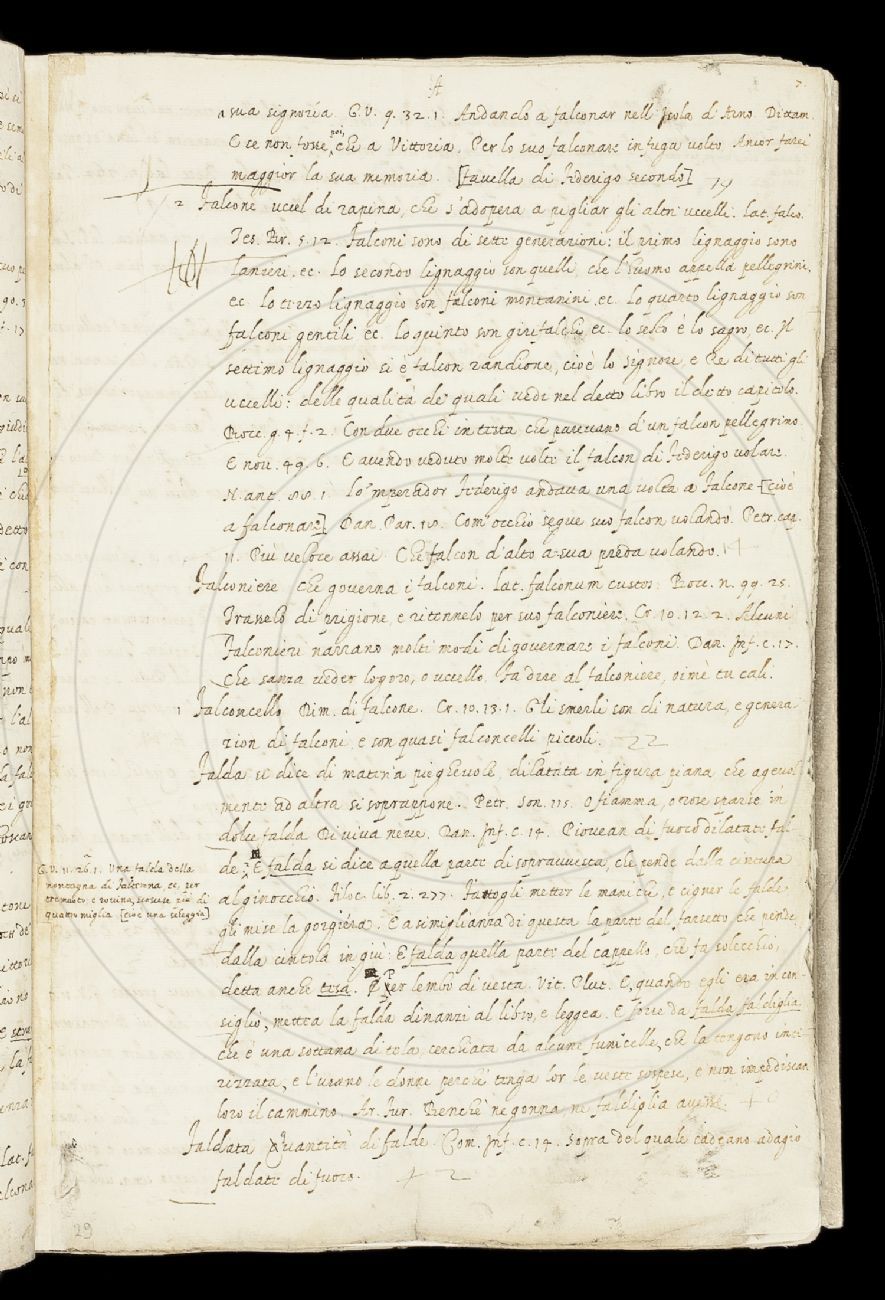 7
a sua signoria. G.V. 9. 32. 1. Andando a falconar nell'Isola d'Arno. Dittam.
E se non fosse poi, che a Vittoria. Per lo suo falconare in fuga volto Ancor farei
maggior la sua memoria. [favella di Federigo secondo] 19
2 Falcone uccel di rapina, che s'adopera a pigliar gli altri uccelli. Lat. falco.
Tes. Br. 5. 12. Falconi sono di sette generazioni: il primo lignaggio sono
lanieri. ec. Lo secondo lignaggio son quelli, che l'huomo appella pellegrini,
ec. lo terzo lignaggio son falconi montanini ec. Lo quarto lignaggio son
falconi gentili ec. Lo quinto son girifalchi ec. lo sesto è lo sagro, ec. Il
settimo lignaggio si è falcon randione, cioè lo signore, e Re di tutti gli
uccelli: delle qualità de' quali vedi nel detto libro il detto capitolo.
Bocc. g. 4. f. 2. Con due occhi in testa che parevano d'un falcon pellegrino.
E nov. 49. 6. E avendo veduto molte volte il falcon di Federigo volare.
N. ant. 88. 1. Lo'mperador Federigo andava una volta a falcone [cioè
a falconare] Dan. Par. 18. Com'occhio segue suo falcon volando. Petr. cap.
11. Più veloce assai Che falcon d'alto a sua preda volando. 14
Falconiere che governa i falconi. Lat. falconum custos. Bocc. n. 99. 25.
Trasselo di prigione, e ritennelo per suo falconiere. Cr. 10. 12. 2. Alcuni
falconieri narrano molti modi di governare i falconi. Dan. Inf. c. 17.
Che sanza veder logoro, o uccello. Fa dire al falconiere, oimè tu cali.
1 Falconcello Dim. di falcone. Cr. 10. 13. 1. Gli smerli son di natura, e genera
zion di falconi, e son quasi falconcelli piccoli. 22
Falda si dice di materia pieghevole, dilatata in figura piana, che agevol
mente ad altra si soprappone. Petr. Son. 115. O fiamma, o rose sparse in
dolce falda Di viva neve. Dan. Inf. c. 14. Piovean di fuoco dilatate fal-
de. E falda si dice a quella parte di sopravvesta, che pende dalla cintura
al ginocchio. Filoc. lib. 2. 277. Fattogli metter le maniche, e cigner le falde
gli mise la gorgiera. E a similianza di questa la parte del farsetto, che pende
dalla cintola in giù. E falda quella parte del cappello, che fa solecchio,
detta anche tesa. Per lembo di vesta. Vit. Plut. E quando egli era in con-
siglio, mettea la falda dinanzi al libro, e leggea. E forse da falda faldiglia
che è una sottana di tela, cerchiata da alcune funicelle, che la tengono inti
rizzata, e l'usano le donne perchè tenga lor le veste sospese, e non impediscan
loro il cammino. Ar. Fur. Benchè nè gonna nè faldiglia avesse.
Faldata Quantità di falde. Com. Inf. c. 14. Sopra del quale cadeano adagio
faldate di fuoco. 2
G.V. 11. 26. 1. Una falda della
montagna di Falterona, ec. per
tremuoto e rovina, scorse più di
quattro miglia [cioè una scheggia]
29